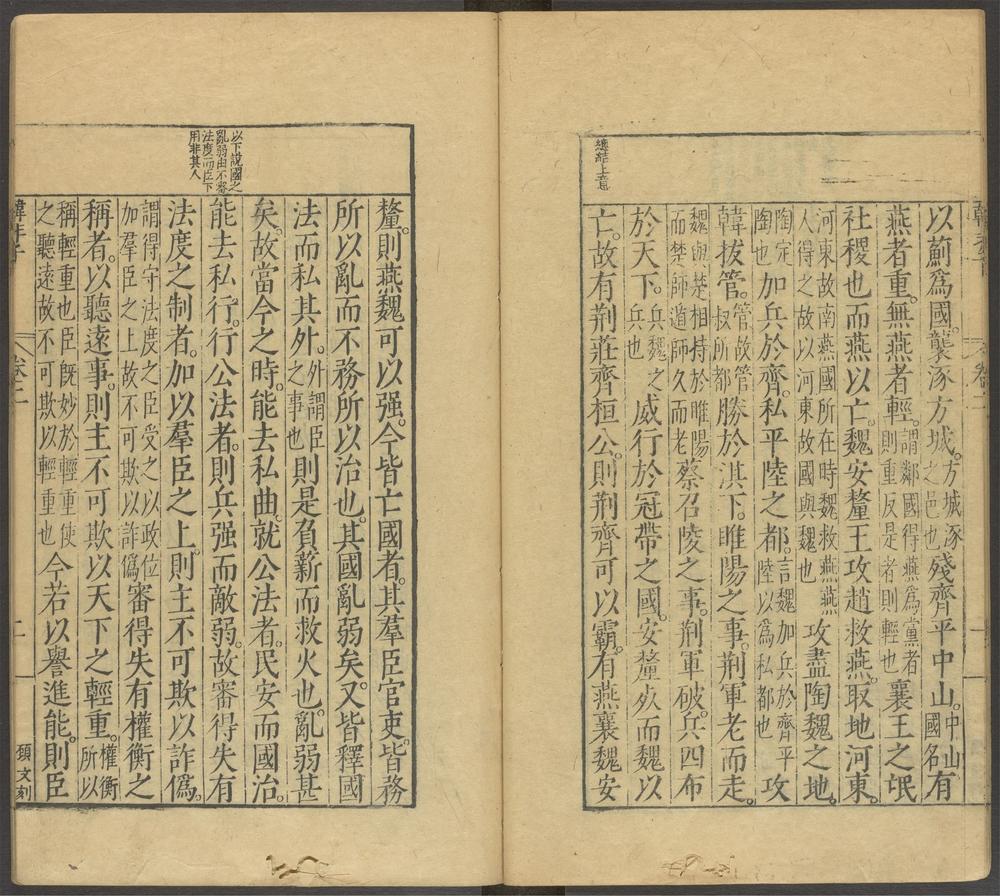 總結上意
韓非子
卷二
以薊爲國。襲涿方城。方城涿之邑也殘齊平中山。中山國名有
燕者重。無燕者輕。謂鄰國得燕爲黨者則重反是者則輕也襄王之氓
社稷也而燕以亡。魏安釐王攻趙救燕。取地河東。
河東故南燕國所在時魏救燕燕人得之故以河東故國與魏也攻盡陶魏之地。
陶定陶也加兵於齊。私平陸之都。言魏加兵於齊平陸以爲私都也攻
韓拔管。管故管叔所都勝於淇下。睢陽之事。荆軍老而走。
魏與楚相持於睢陽而楚師遁師久而老蔡召陵之事。荆軍破。兵四布
於天下。魏之兵也威行於冠帶之國。安釐死而魏以
亡。故有荆莊齊桓公。則荆齊可以霸。有燕襄魏安
以下說國之
亂弱由不審
法度而臣下
用非其人
釐。則燕魏可以强。今皆亡國者。其羣臣官吏。皆務
所以亂而不務所以治也。其國亂弱矣。又皆釋國
法而私其外。外謂臣之事也則是負薪而救火也。亂弱甚
矣。故當今之時。能去私曲。就公法者。民安而國治。
能去私行。行公法者。則兵强而敵弱。故審得失有
法度之制者。加以羣臣之上。則主不可欺以詐僞。
謂得守法度之臣受之以政位加羣臣之上故不可欺以詐僞審得失有權衡之
稱者。以聽遠事。則主不可欺以天下之輕重。權衡所以
稱輕重也臣旣妙於輕重使之聽遠故不可欺以輕重也今若以譽進能。則臣
韓非子
卷二
二
頚文刻